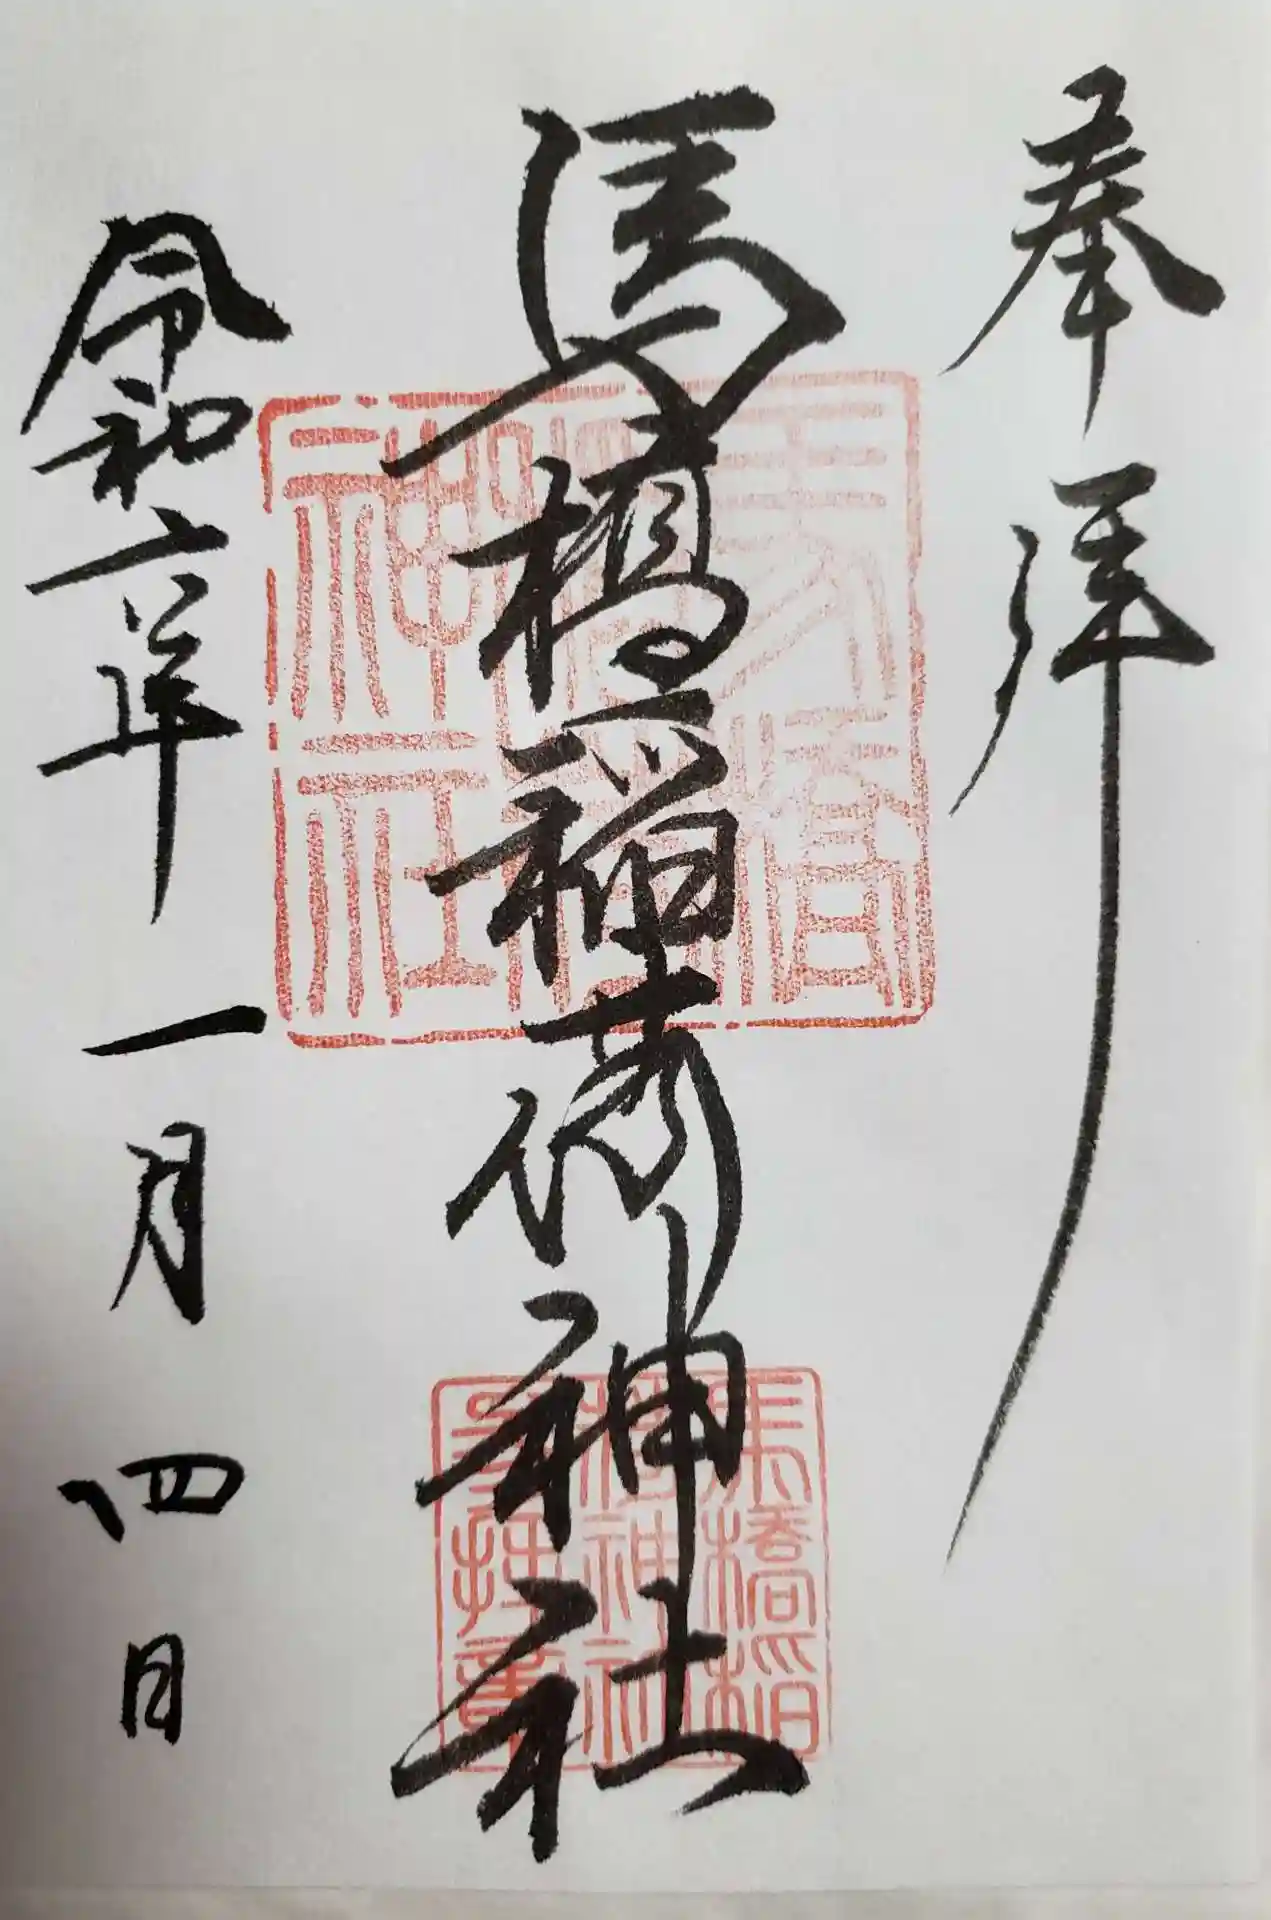 奉拝
馬橋稲荷神社
令和六年一月四日
馬橋
稲荷
神社
馬橋稲
荷神社